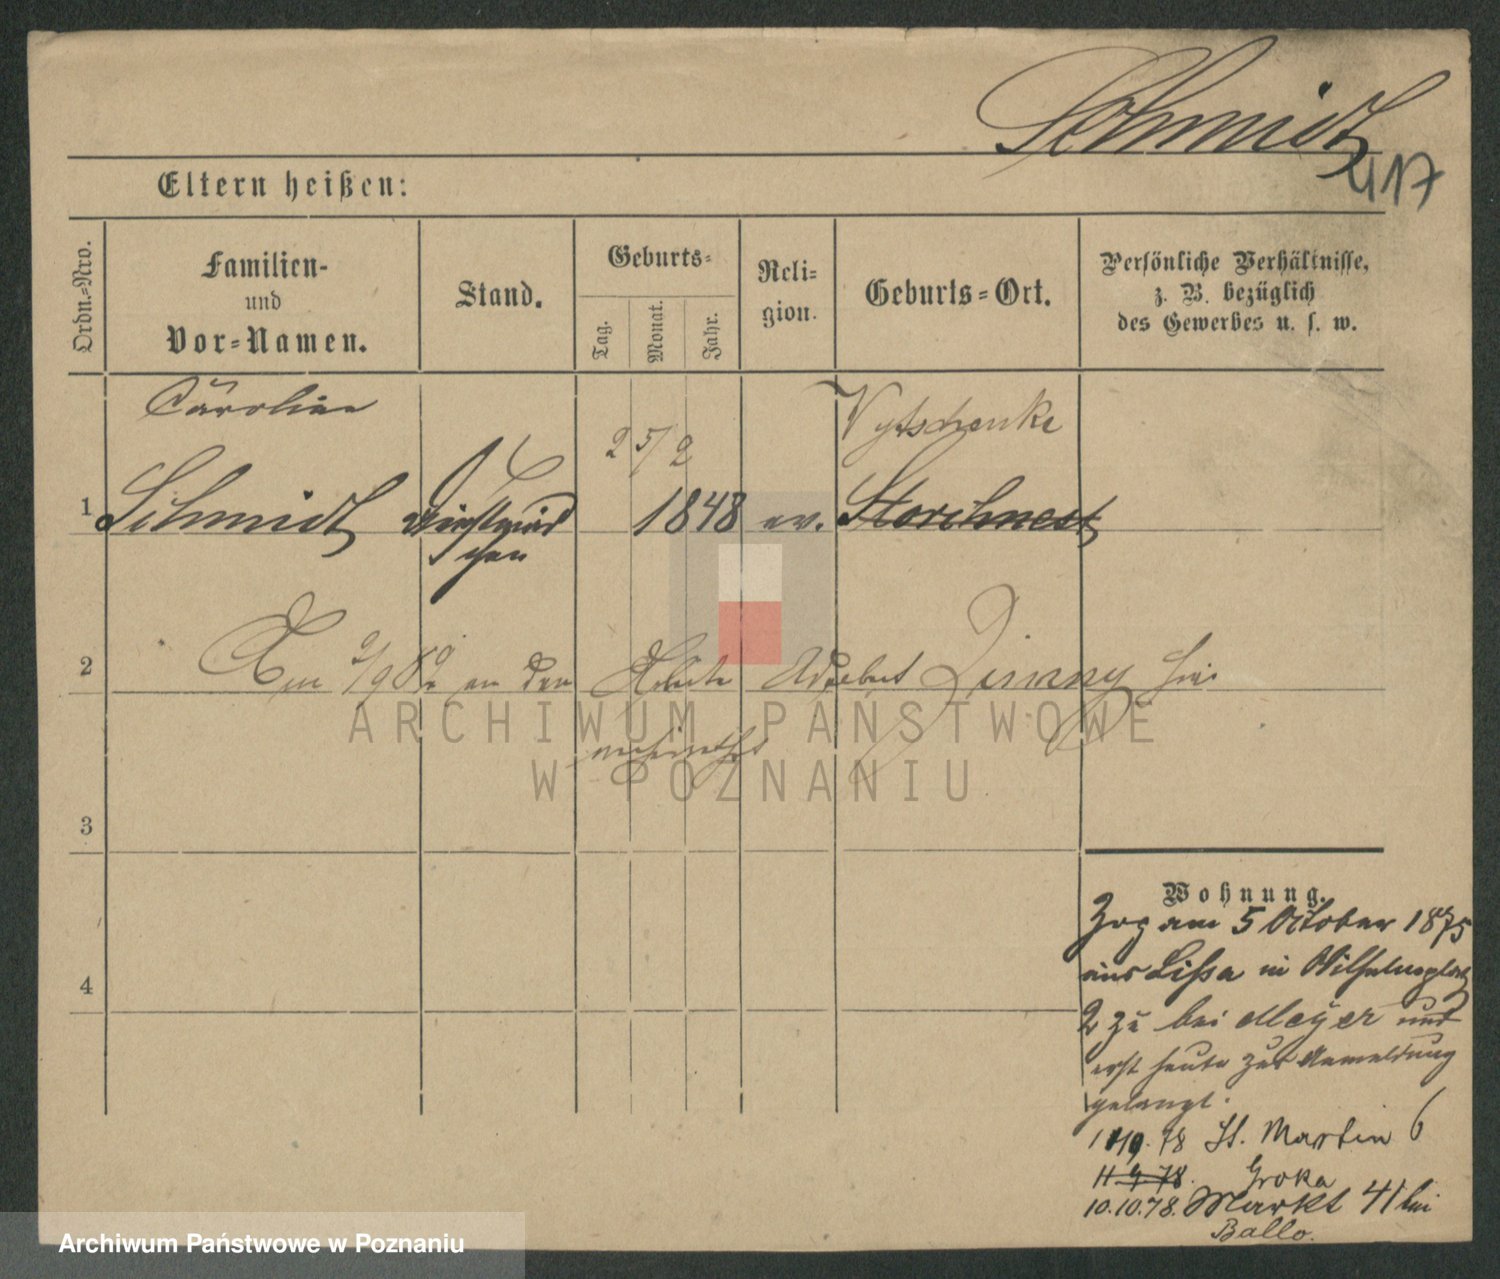 Schmidt
417
Eltern heißen:
Ordn.-Nro.
Familien-
und
Vor-Namen.
Stand.
Geburts-
Tag.
Monat.
Jahr.
Reli-
gion.
Geburts-Ort.
Persönliche Verhältnisse,
z. B. bezüglich
des Gewerbes u. s. w.
Caroline
25/2
1
Schmidt
1848
ev.
Storchnest
2
Am 2/9 82 an den Zimny hier
3
4
Wohnung.
Zog am 5 October 1875
aus Lissa in Wilhelmsplatz
2 zu bei Meyer und
erst heute zur Anmeldung
gelangt.
78 St. Martin 6
Groka
10.10.78. Markt 41 bei
Ballo.
ARCHIWUM PAŃSTWOWE
W POZNANIU
Archiwum Państwowe w Poznaniu